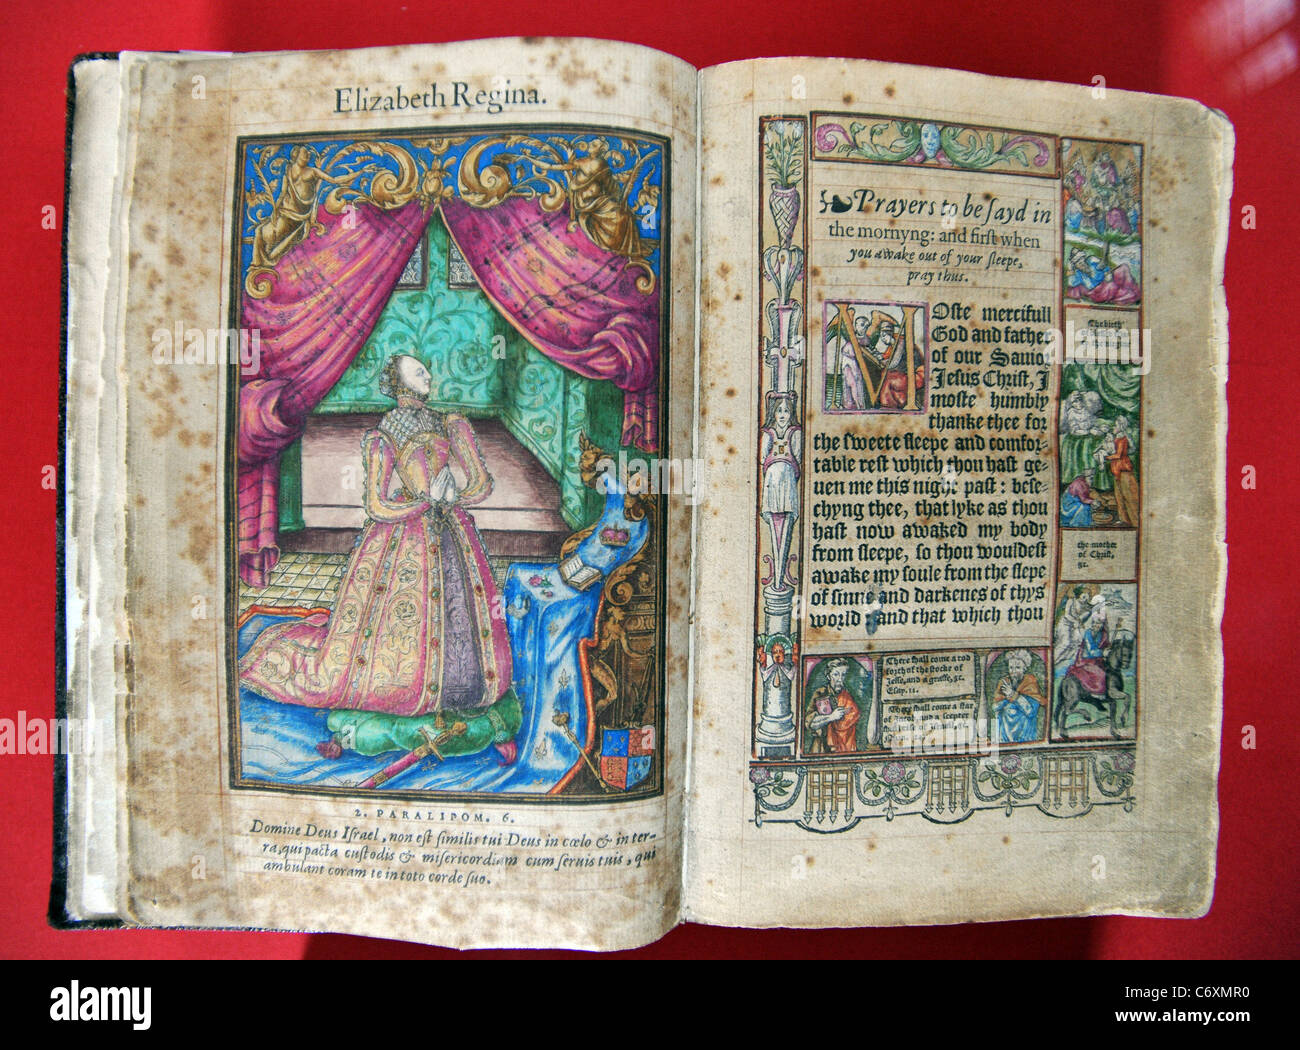 Elizabeth Regina.
2. PARALIPOM. 6.
Domine Deus Israel, non est similis tui Deus in cœlo & in ter-
ra, qui pacta custodis & misericordiam cum seruis tuis, qui
ambulant coram te in toto corde suo.
Prayers to be sayd in
the mornyng: and first when
you awake out of your sleepe,
pray thus.
MOste mercifull
God and father
of our Sauior
Jesus Christ, I
moste humbly
thanke thee for
the sweete sleepe and comfor-
table rest which thou hast ge-
uen me this night past: bese-
chyng thee, that lyke as thou
hast now awaked my body
from sleepe, so thou wouldest
awake my soule from the slepe
of sinne and darkenes of thys
world: and that which thou
The birth
the mother
of Christ,
&c.
There shall come a rod
forth of the stocke of
Jesse, and a grasse, &c.
Esay. 11.
There shall come a star
of Jacob, and a scepter
a alamy stock photo
alamy
Image ID: C6XMR0
www.alamy.com